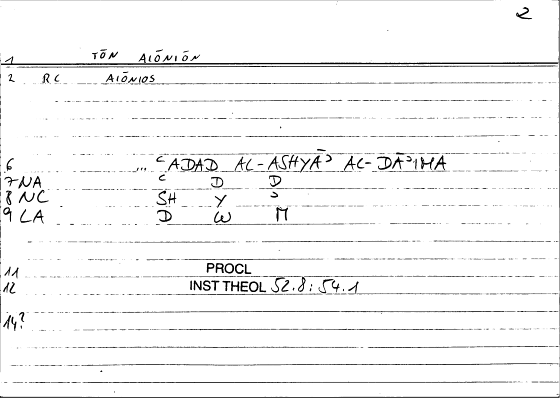 2
1 TŌN AIŌNIŌN
2 RC AIŌNIOS
6 ... ᶜADAD AL-ASHYĀᵓ AL-DĀᵓIMA
7 NA ᶜ D D
8 NC SH Y ᵓ
9 LA D W M
11 PROCL
12 INST THEOL 52.8: 54.1
14?